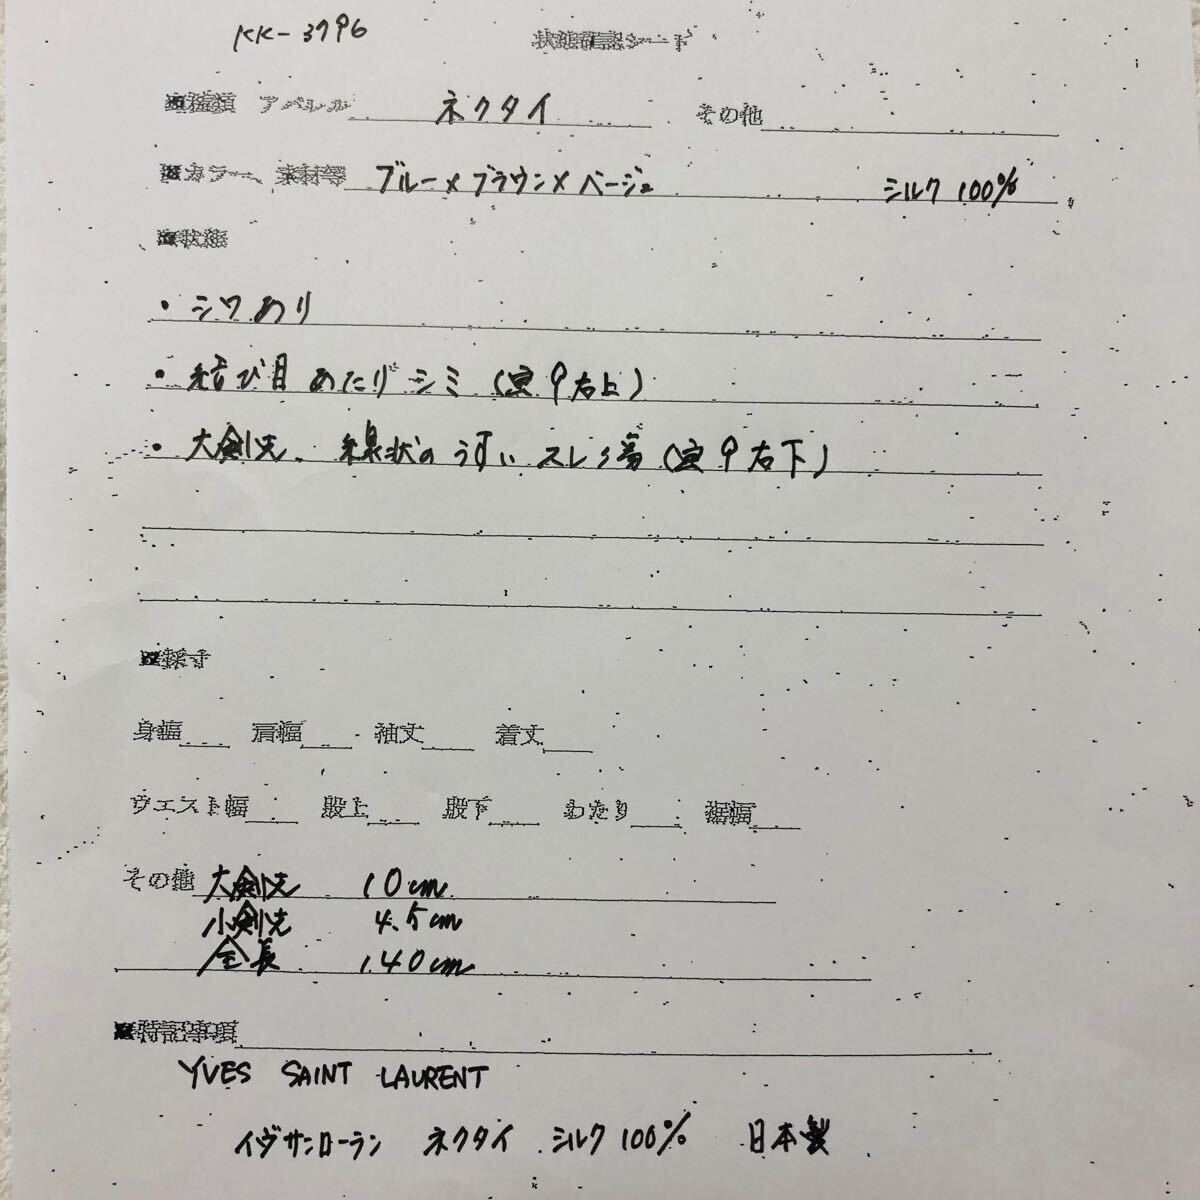 KK-3796
状態確認シート
■種類 アパレル ネクタイ その他
■カラー、素材等 ブルー×ブラウン×ベージュ シルク 100%
■状態
・シワあり
・結び目あたりシミ(写9右上)
・大剣先、線状のうすいスレ傷(写9右下)
■採寸
身幅 肩幅 袖丈 着丈
ウエスト幅 股上 股下 わたり 裾幅
その他 大剣先 10cm
小剣先 4.5cm
全長 140cm
■特記事項
YVES SAINT LAURENT
イヴサンローラン ネクタイ シルク 100% 日本製